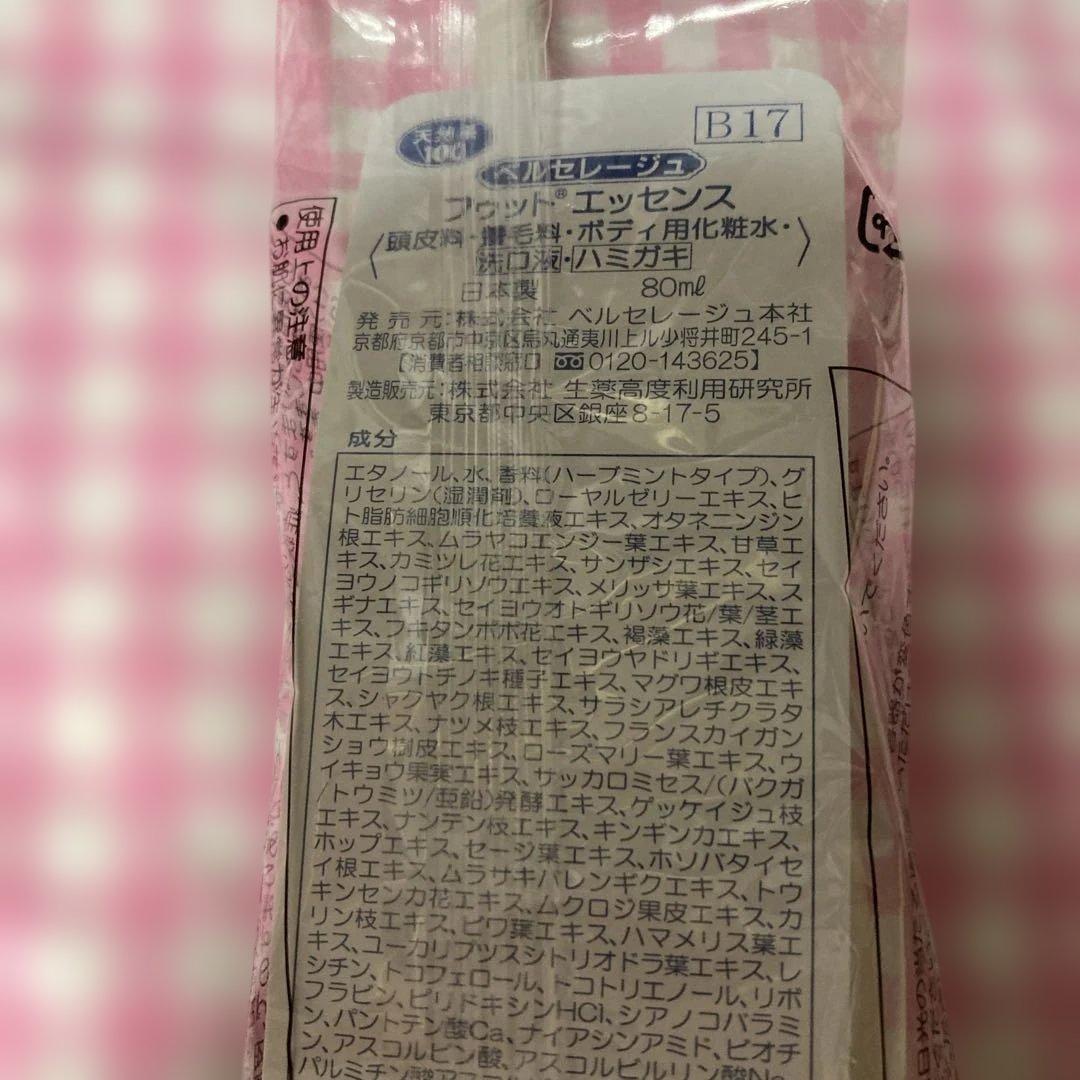 B17
天然
100
ベルセレージュ
フゥット® エッセンス
〈頭皮料・養毛料・ボディ用化粧水・
洗口液・ハミガキ〉
日本製 80㎖
発売元:株式会社 ベルセレージュ本社
京都府京都市中京区烏丸通夷川上ル少将井町245-1
【消費者相談窓口 0120-143625】
製造販売元:株式会社 生薬高度利用研究所
東京都中央区銀座8-17-5
成分
エタノール、水、香料(ハーブミントタイプ)、グ
リセリン(湿潤剤)、ローヤルゼリーエキス、ヒ
ト脂肪細胞順化培養液エキス、オタネニンジン
根エキス、ムラヤコエンジー葉エキス、甘草エ
キス、カミツレ花エキス、サンザシエキス、セイ
ヨウノコギリソウエキス、メリッサ葉エキス、ス
ギナエキス、セイヨウオトギリソウ花/葉/茎エ
キス、フキタンポポ花エキス、褐藻エキス、緑藻
エキス、紅藻エキス、セイヨウヤドリギエキス、
セイヨウトチノキ種子エキス、マグワ根皮エキ
ス、シャクヤク根エキス、サラシアレチクラタ
木エキス、ナツメ枝エキス、フランスカイガン
ショウ樹皮エキス、ローズマリー葉エキス、ウ
イキョウ果実エキス、サッカロミセス/(バクガ
/トウミツ/亜鉛)発酵エキス、ゲッケイジュ枝
エキス、ナンテン枝エキス、キンギンカエキス、
ホップエキス、セージ葉エキス、ホソバタイセ
イ根エキス、ムラサキバレンギクエキス、トウ
キンセンカ花エキス、ムクロジ果皮エキス、カ
リン枝エキス、ビワ葉エキス、ハマメリス葉エ
キス、ユーカリプツスシトリオドラ葉エキス、レ
シチン、トコフェロール、トコトリエノール、リボ
フラビン、ピリドキシンHCl、シアノコバラミ
ン、パントテン酸Ca、ナイアシンアミド、ビオチ
ン、アスコルビン酸、アスコルビルリン酸Na
パルミチン酸ア
使用上の注意